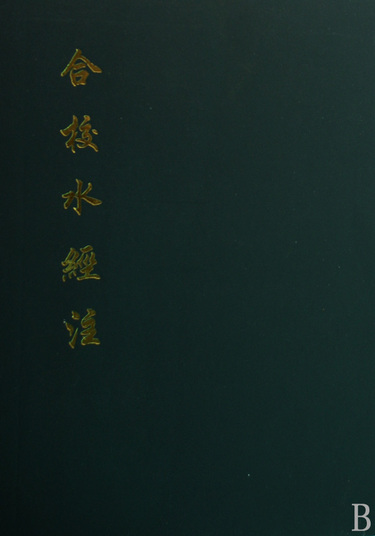 合校水經注
B